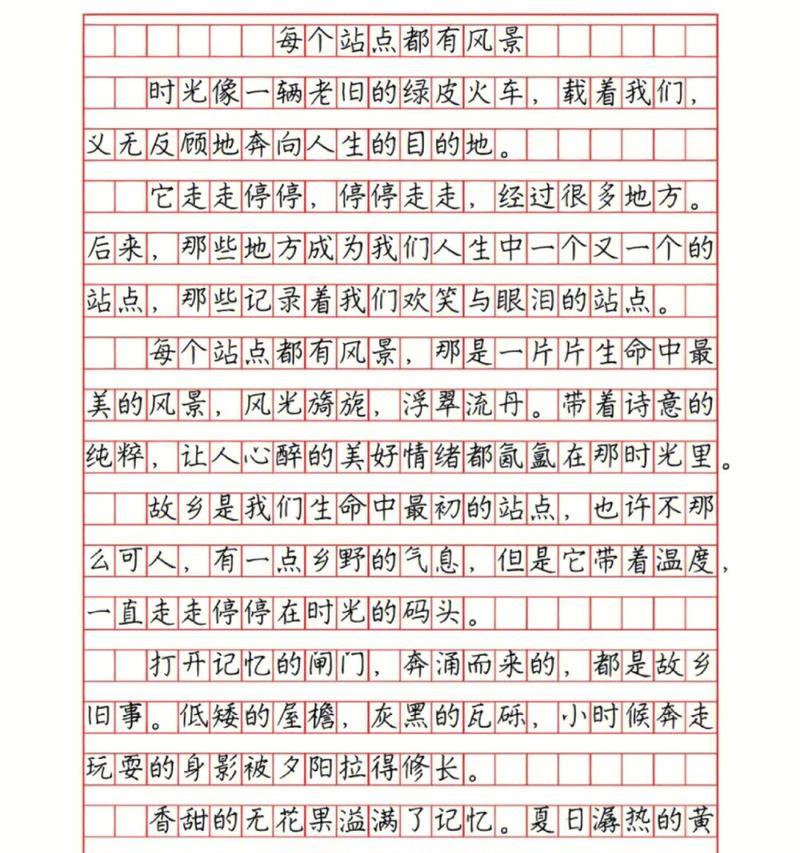 每个站点都有风景
时光像一辆老旧的绿皮火车，载着我们，
义无反顾地奔向人生的目的地。
它走走停停，停停走走，经过很多地方。
后来，那些地方成为我们人生中一个又一个的
站点，那些记录着我们欢笑与眼泪的站点。
每个站点都有风景，那是一片片生命中最
美的风景，风光旖旎，浮翠流丹。带着诗意的
纯粹，让人心醉的美好情绪都氤氲在那时光里。
故乡是我们生命中最初的站点，也许不那
么可人，有一点乡野的气息，但是它带着温度，
一直走走停停在时光的码头。
打开记忆的闸门，奔涌而来的，都是故乡
旧事。低矮的屋檐，灰黑的瓦砾，小时候奔走
玩耍的身影被夕阳拉得修长。
香甜的无花果溢满了记忆。夏日潺热的黄